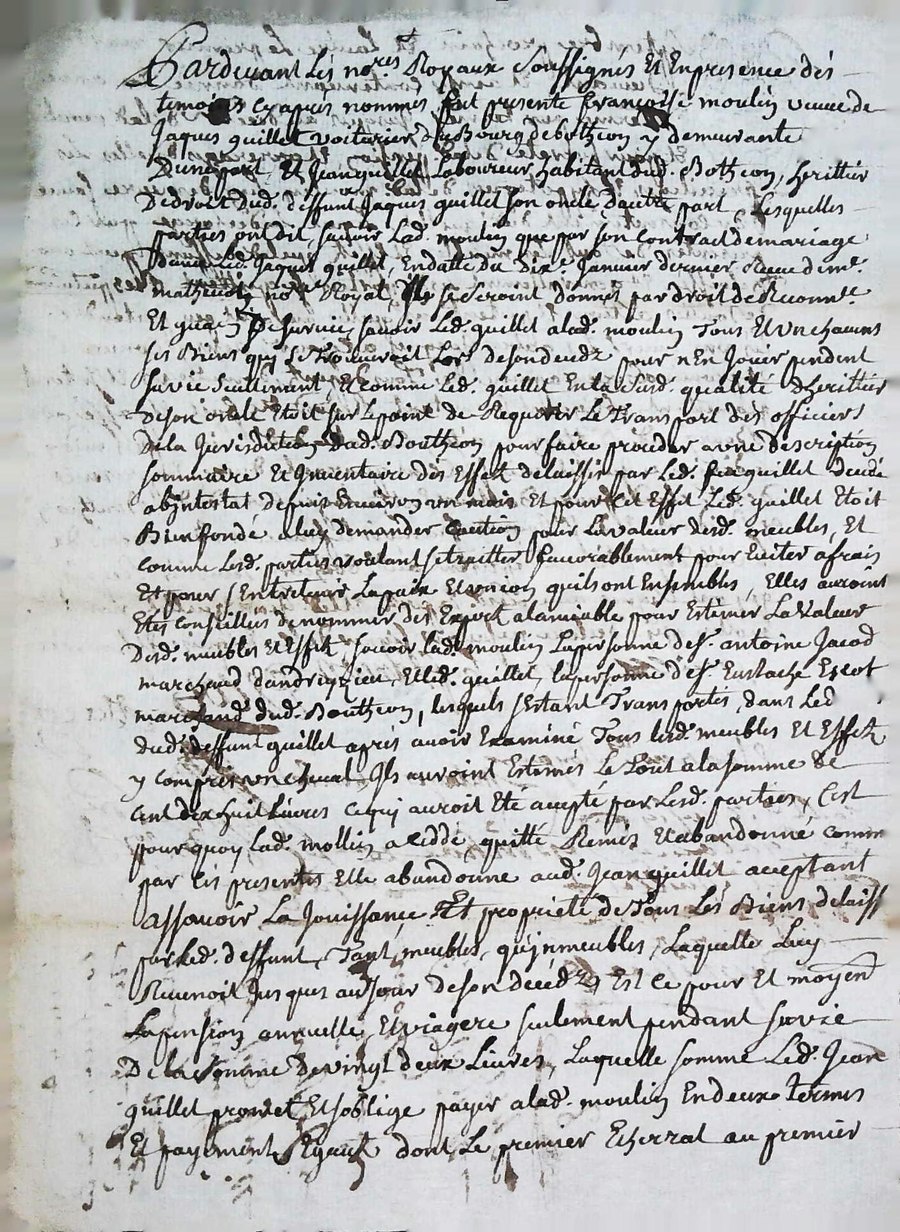 Pardevant Les no.res Royaux Soussignés Et En presence des
temoins cy apres nommés fut presente françoise moulin veuve de
Jaques quillet voiturier du Bourg de botheon y demeurante
D'une part, Et Jean quillet Laboureur habitant dud. Botheon, heritier
De droit dud. deffunt Jaques quillet son oncle, D'autre part, Lesquelles
parties ont dit, savoir Lad. moulin que par son contract de mariage
Led. Jaques quillet, En datte du Dix.e Janvier dernier Receu de m.e
no.re Royal, Ils se seroint donnés par droit de
Et de survie, savoir Led. quillet a lad. moulin Tous Et un chacuns
ses Biens quy se trouveroit Lors de son decedz pour n'En Jouir pendent
sa vie seullement, Et comme Led. quillet En la susd. qualité d'heritier
De son oncle Etoit sur le point de Requerir Le Transport des officiers
De la Jurisdiction dud. Bouthéon pour faire proceder a une description
sommaire Et Jnventaire des Effetz delaissés par Led. feu quillet decedé
abjntestat Depuis Environ un mois Et pour cet Effet Led. quillet Etoit
Bien fondé a luy demander caution pour La valeur desd. meubles, Et
comme Lesd. parties voulant se traitter favorablement pour Eviter a frais
Et pour s'Entretenir La paix Et union quils ont Ensembles, Elles auroint
Etés conseillés de nommer des Expert a lamiable pour Estimer La valeur
Desd. meubles Et Effetz savoir lad. moulin La personne de s.r antoine Jacod
marchand dandrezieu, Et led. quillet la personne de s.r Eustache Escot
marchand dud. Bouthéon, lesquels s'Estant Transportés dans Led
dud. deffunt quillet aprés avoir Examiné Tous lesd. meubles Et Effetz
y compris un cheval, Ils auroint Estimés Le Tout a la somme de
Cent dix huit Livres ce quy auroit Eté accepté par Lesd. parties, C'est
pourquoy Lad. mollin a ceddé, quitté Remis Et abandonné comme
par ces presentes Elle abandonne aud. Jean quillet acceptant
assavoir La Jouissance Et propriete de Tous Les Biens delaiss
par Led. deffunt, Tant meubles, qujnmeubles, Laquelle Luy
Revenoit Jusques au Jour de son decedz, Et Ce pour Et moyen
La pension annuelle, Et viagere seulement pendant sa vie
De la somme De vingt deux Livres, Laquelle somme Led. Jean
quillet promet Et soblige payer a lad. moulin En deux termes
Et payement Egaux dont Le premier Echerrat au premier